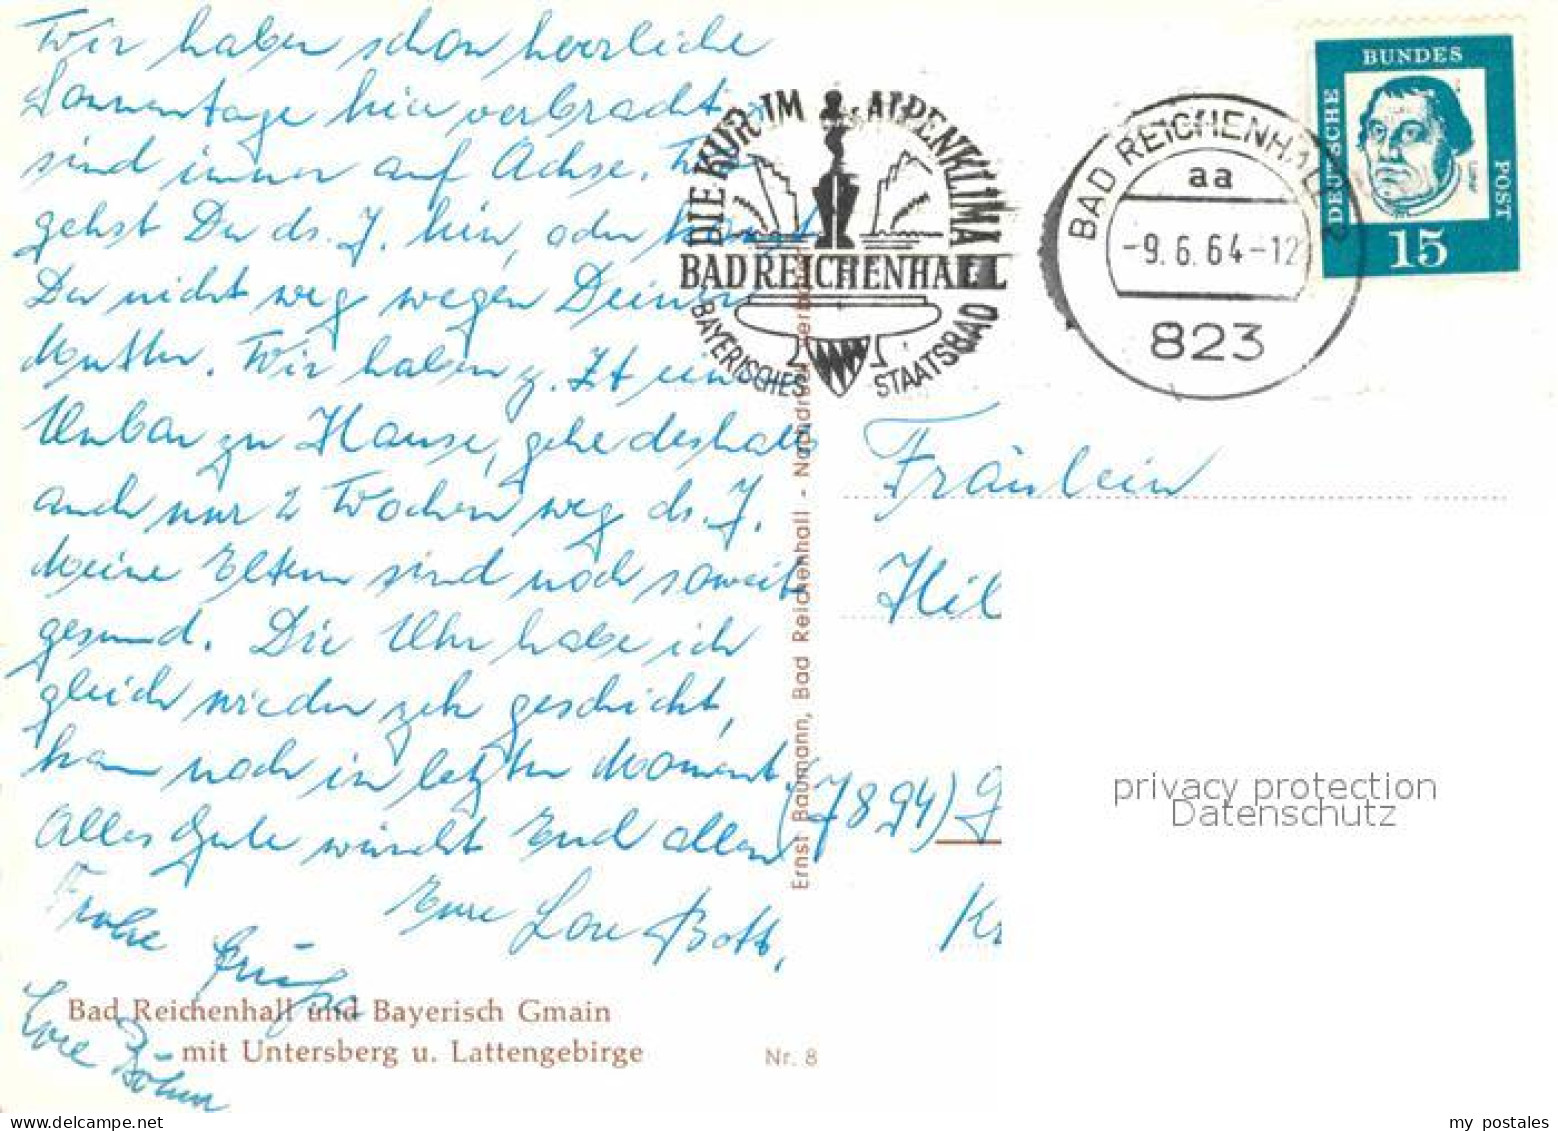 Wir haben schon herrliche
Sonnentage hier verbracht,
sind immer auf Achse.
gehst Du ds. J. hin, oder kannst
Du nicht weg wegen Deiner
Mutter. Wir haben z. Zt ein
Umbau zu Hause, gehe deshalb
auch nur 2 Wochen weg ds. J.
Meine Eltern sind noch soweit
gesund. Die Uhr habe ich
gleich wieder geschickt,
kam noch im letzten Moment.
Alles Gute wünscht Euch allen
Eure Lore Bott,
Frohe Grüße
Lore Böhm
Bad Reichenhall und Bayerisch Gmain
mit Untersberg u. Lattengebirge
Nr. 8
Ernst Baumann, Bad Reichenhall - Nachdruck verboten
DIE KUR IM ALPENKLIMA
BAD REICHENHALL
BAYERISCHES STAATSBAD
BAD REICHENHALL
aa
-9.6.64-12
823
DEUTSCHE BUNDES POST
15
Fräulein
Hil
(7894) G
Kr
privacy protection
Datenschutz
my postales